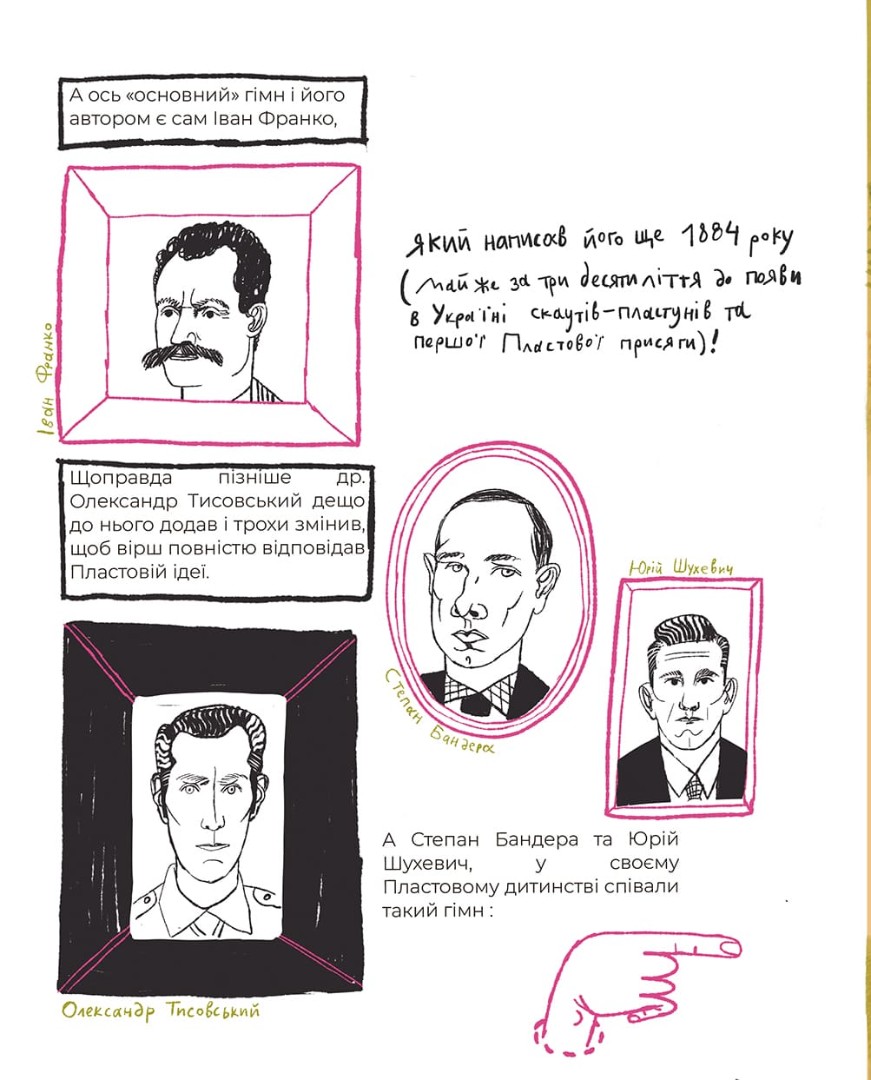 А ось «основний» гімн і його
автором є сам Іван Франко,
Іван Франко
який написав його ще 1884 року
(майже за три десятиліття до появи
в Україні скаутів-пластунів та
першої Пластової присяги)!
Щоправда пізніше др.
Олександр Тисовський дещо
до нього додав і трохи змінив,
щоб вірш повністю відповідав
Пластовій ідеї.
Степан Бандера
Юрій Шухевич
Олександр Тисовський
А Степан Бандера та Юрій
Шухевич, у своєму
Пластовому дитинстві співали
такий гімн :